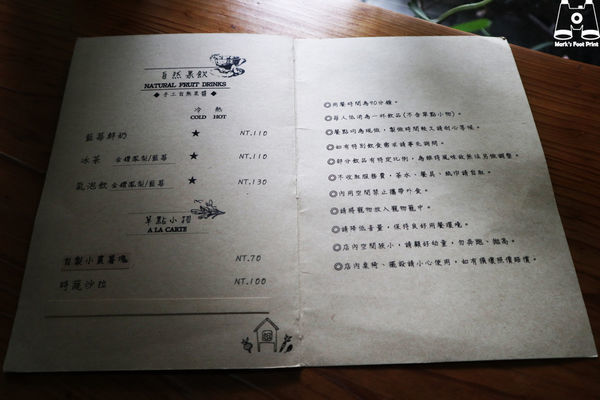 自然果飲
NATURAL FRUIT DRINKS
◆ 手工自熬果醬 ◆
冷 熱
COLD HOT
藍莓鮮奶 ★ NT.110
冰茶 金鑽鳳梨/藍莓 ★ NT.110
氣泡飲 金鑽鳳梨/藍莓 ★ NT.130
單點小翔
A LA CARTE
自製小薯薯塊 NT.70
時蔬沙拉 NT.100
◎用餐時間為90分鐘。
◎每人低消為一杯飲品(不含單點小物)。
◎餐點均為現做,製做時間較久請耐心等候。
◎如有特別飲食需求請事先詢問。
◎部分飲品有特定比例,為維持風味故無法另做調整。
◎不收取服務費,茶水、餐具、紙巾請自取。
◎內用空間禁止攜帶外食。
◎請將寵物放入寵物籠中。
◎請降低音量,保持良好用餐環境。
◎店內空間狹小,請顧好幼童,勿奔跑、攀高。
◎店內桌椅、擺設請小心使用,如有損壞照價賠償。
Mark's Foot Print